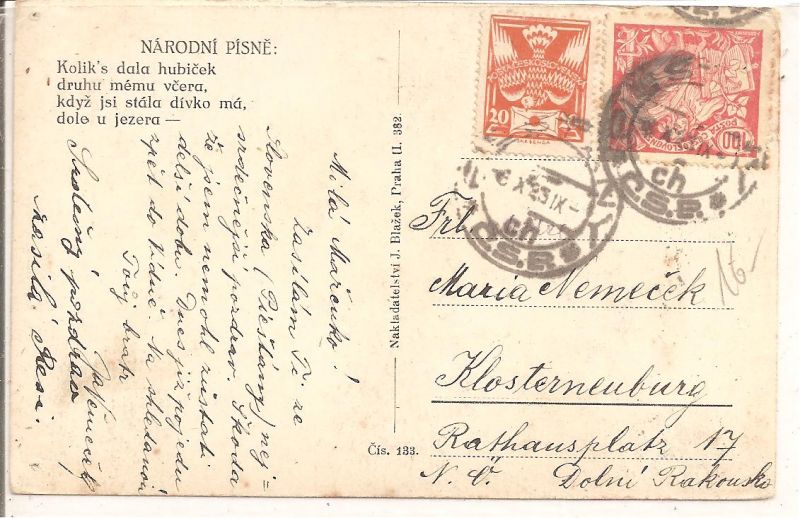 NÁRODNÍ PÍSNĚ:
Kolik's dala hubiček
druhu mému včera,
když jsi stála dívko má,
dole u jezera —
Milá Mařenko!
Zasílám Ti ze
Slovenska (Pieštány) nej=
srdečnější pozdrav. Škoda
že jsem nemohl zůstati
delší dobu. Dnes již pojedu
zpět do Vídně. Na shledanou
Tvůj bratr
JaNemeček
Srdečný pozdrav
zasílá Resi.
Nakladatelství J. Blažek, Praha II. 382.
Čís. 133.
20
100
ch
Č.S.R.
ch
Č.S.R.
16-
Frl.
Maria Nemeček
Klosterneuburg
Rathausplatz 17
N. Ö. Dolní Rakousko